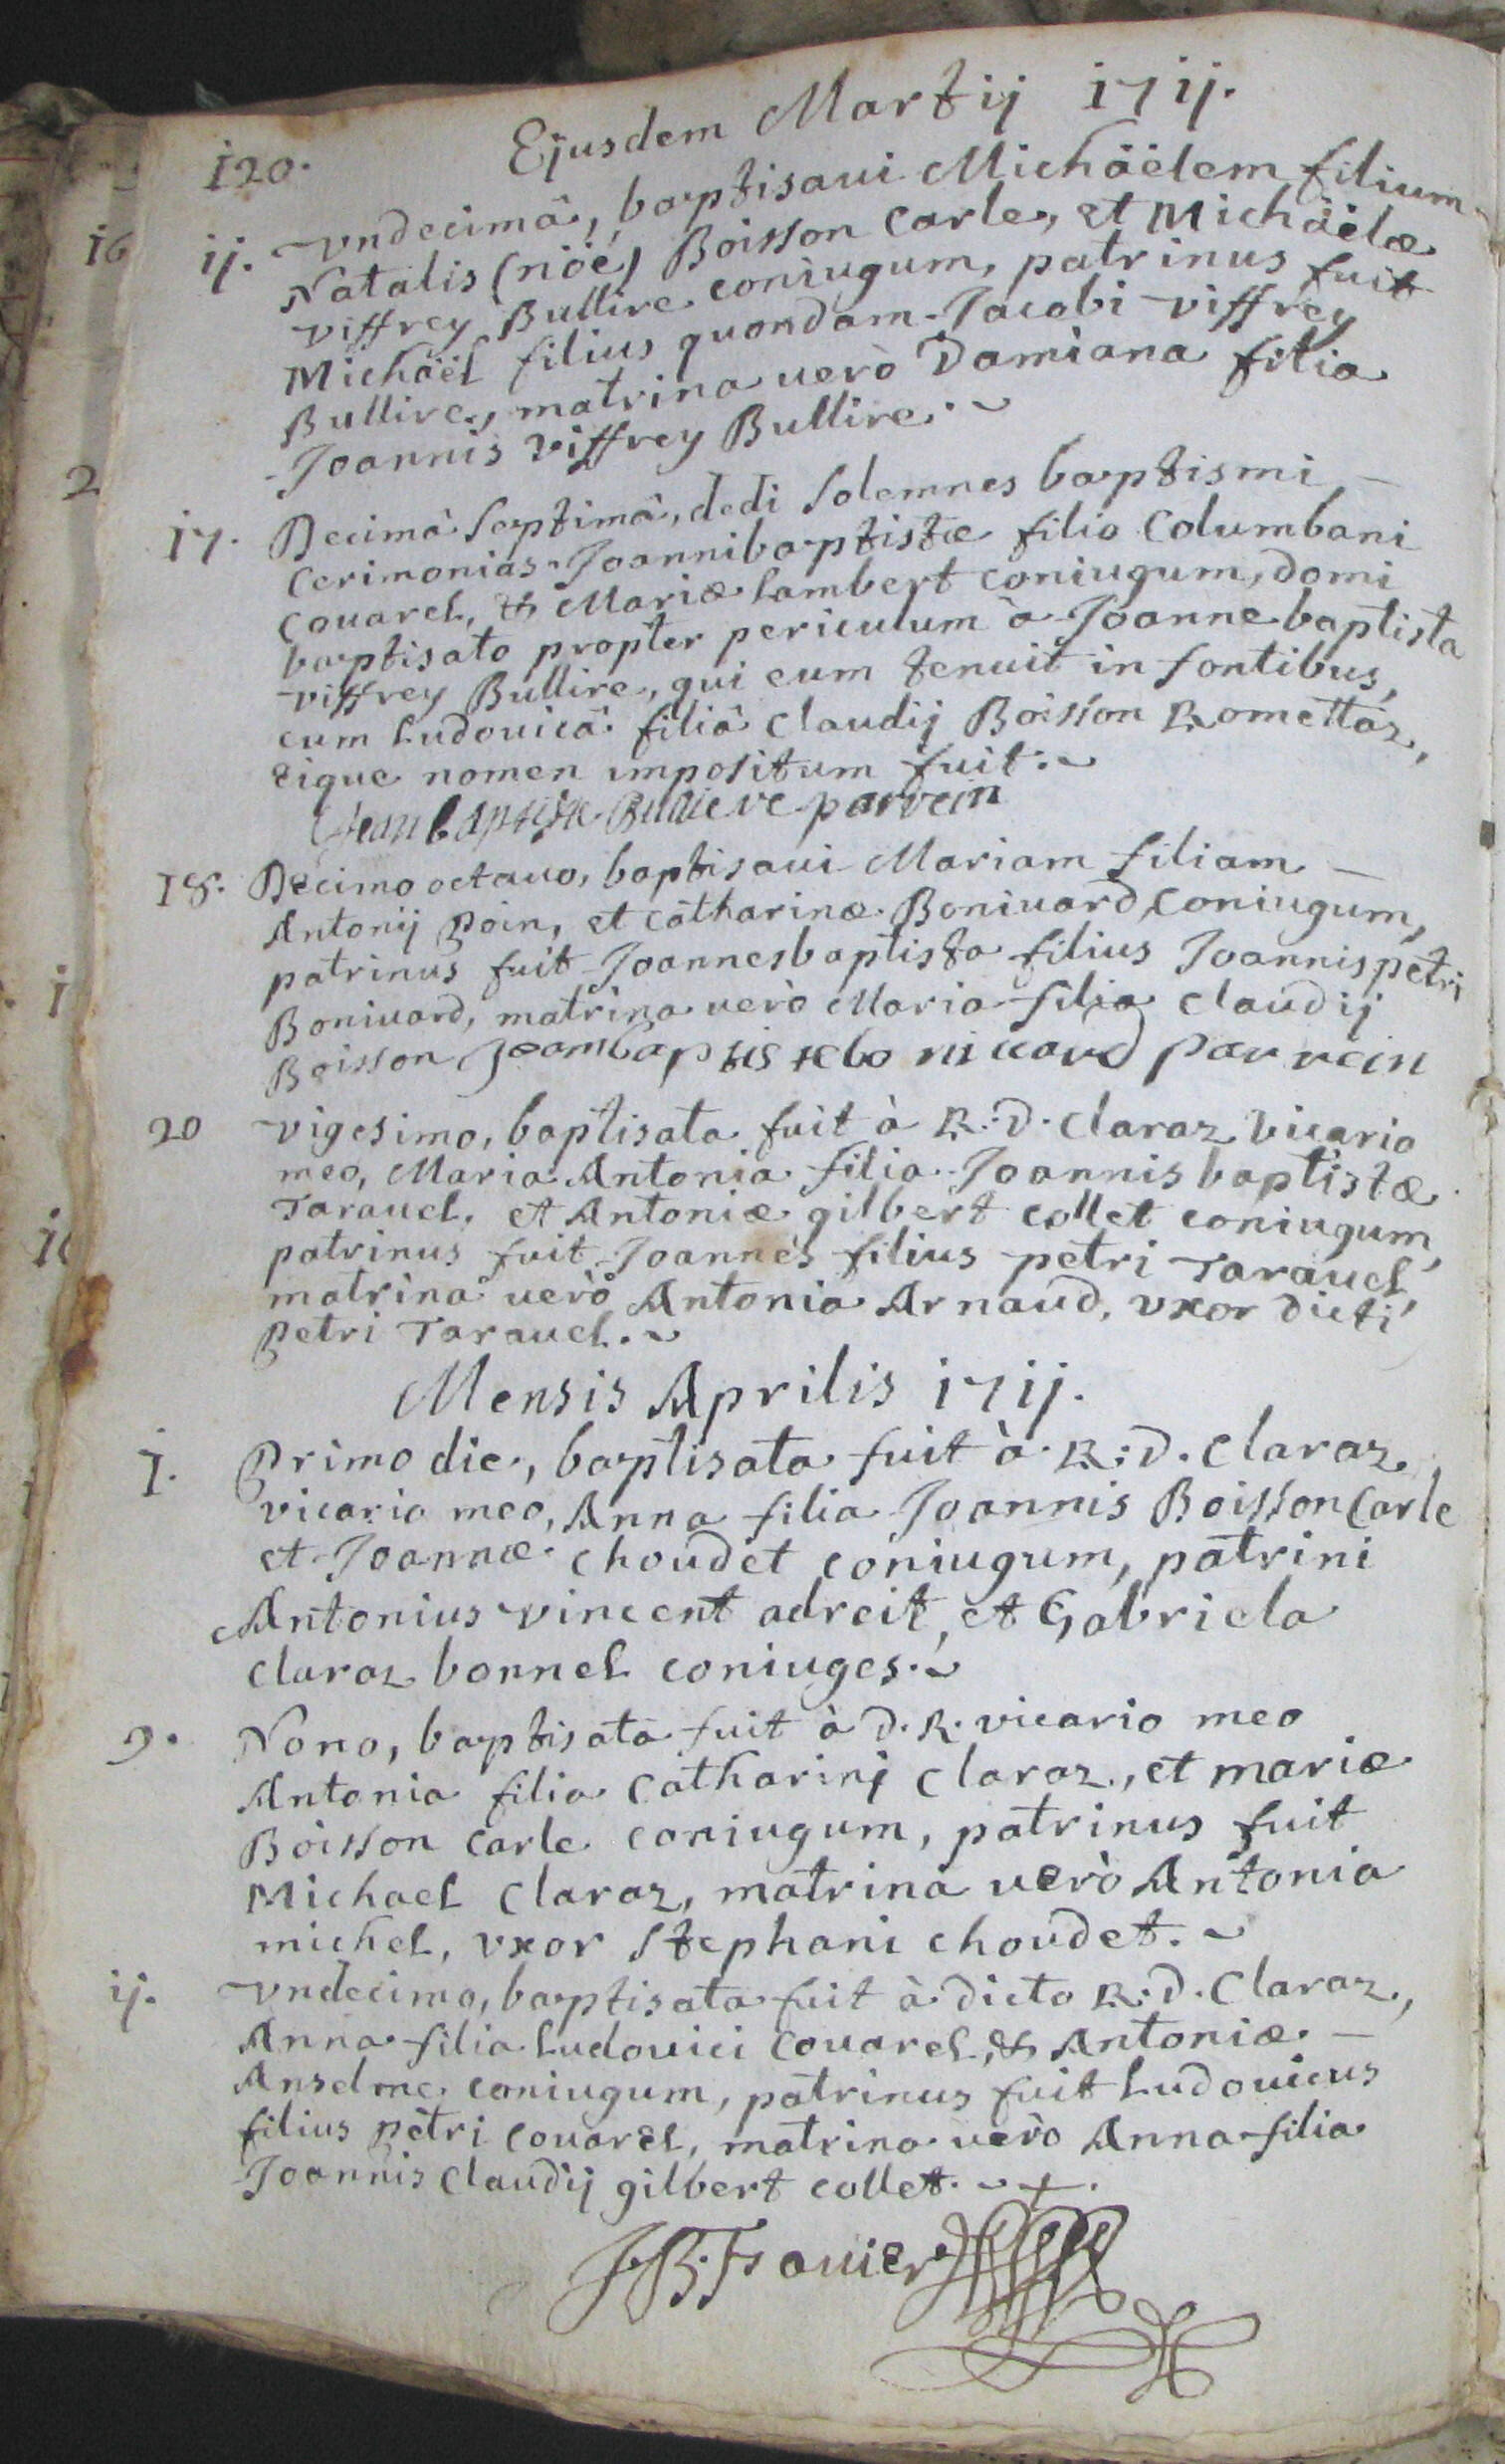 120. Ejusdem Martij 17ij.
ij. vndecimâ, baptisaui Michäëlem filium
Natalis (nöé) Boisson Carle, et Michäëlæ
viffrey Bullire coniugum, patrinus fuit
Michäël filius quondam Jacobi viffrey
Bullire, matrina uerò Damiana filia
Joannis viffrey Bullire.
17. Decimâ septimâ, dedi solemnes baptismi
Cerimonias Joannibaptistæ filio Columbani
Couarel, & Mariæ Lambert coniugum, domi
baptisato propter periculum à Joannebaptista
viffrey Bullire, qui eum tenuit in fontibus,
cum Ludouicâ filiâ Claudij Boisson Romettaz,
eique nomen impositum fuit.
Jean baptiste Bulliere parrein
18. Decimo octauo, baptisaui Mariam filiam
Antonij Poin, et Catharinæ Boniuard coniugum,
patrinus fuit Joannesbaptista filius Joannispetri
Boniuard, matrina uerò Maria filia Claudij
Boisson Jeambaptiste bo niuard parrein
20 vigesimo, baptisata fuit à R.D. Claraz vicario
meo, Maria Antonia filia Joannisbaptistæ
Tarauel, et Antoniæ gilbert collet coniugum,
patrinus fuit Joannes filius petri Tarauel,
matrina uerò Antonia Arnaud, vxor dicti
Petri Tarauel.
Mensis Aprilis 17ij.
I. Primo die, baptisata fuit à R:D. Claraz
vicario meo, Anna filia Joannis Boisson Carle
et Joannæ choudet coniugum, patrini
Antonius vincent adreit, et Gabriela
Claraz bonnel coniuges.
9. Nono, baptisata fuit à D.R. vicario meo
Antonia filia Catharinj Claraz, et mariæ
Boisson Carle coniugum, patrinus fuit
Michael Claraz, matrina uerò Antonia
michel, vxor Stephani choudet.
ij. vndecimo, baptisata fuit à dicto R.D. Claraz,
Anna filia Ludouici Couarel, & Antoniæ
Anselme coniugum, patrinus fuit Ludouicus
filius petri Couarel, matrina uerò Anna filia
Joannis Claudij gilbert collet.